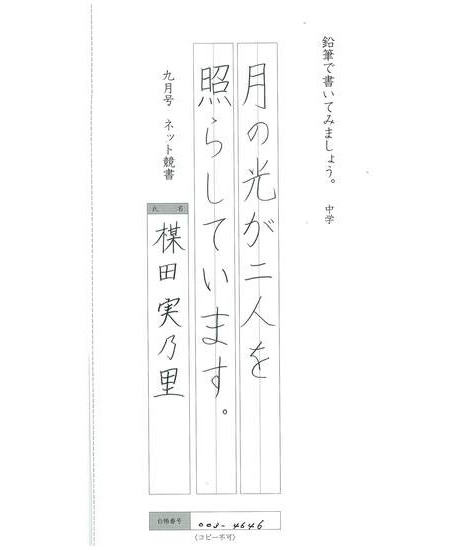 鉛筆で書いてみましょう。 中学
月の光が二人を
照らしています。
九月号 ネット競書
氏 名
楳田実乃里
台帳番号
008-4646
〈コピー不可〉